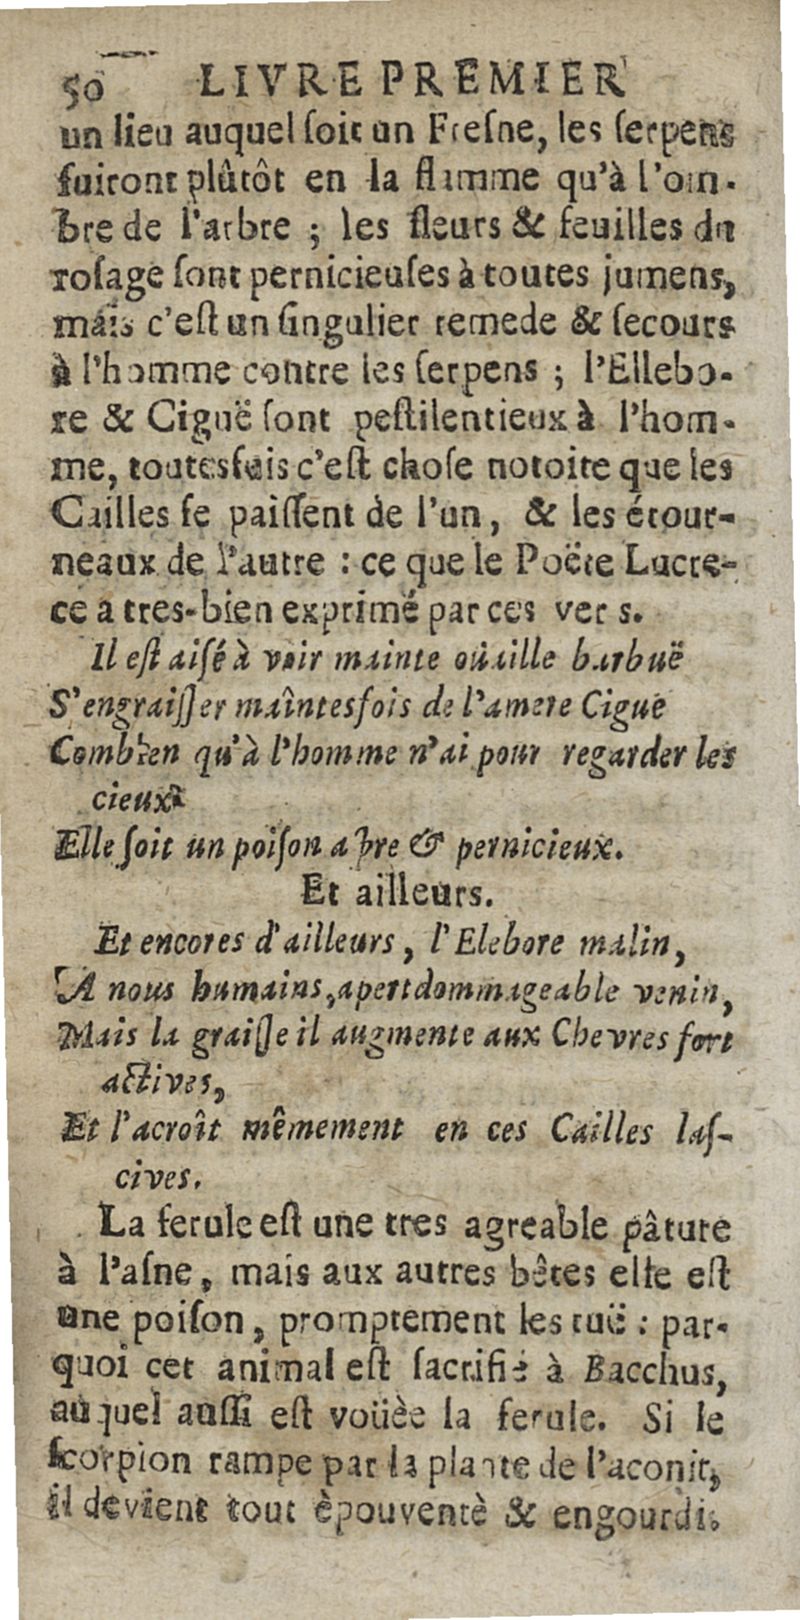 50 LIVRE PREMIER
un lieu auquel ſoit un Freſne, les ſerpens
fuiront plûtôt en la flamme qu'à l'om-
bre de l'arbre ; les fleurs & feuilles du
roſage ſont pernicieuſes à toutes jumens,
mais c'eſt un ſingulier remede & ſecours
à l'homme contre les ſerpens ; l'Ellebo-
re & Ciguë ſont peſtilentieux à l'hom-
me, toutesfois c'eſt choſe notoire que les
Cailles ſe paiſſent de l'un, & les étour-
neaux de l'autre : ce que le Poëte Lucre-
ce a tres-bien exprimé par ces vers.
Il eſt aiſé à voir mainte oüaille barbuë
S'engraiſſer maîntesfois de l'amere Cigue
Combien qu'à l'homme n'ai pour regarder les
cieux
Elle ſoit un poiſon apre & pernicieux.
Et ailleurs.
Et encores d'ailleurs, l'Elebore malin,
A nous humains, apert dommageable venin,
Mais la graiſſe il augmente aux Chevres fort
actives,
Et l'acroît mêmement en ces Cailles laſ-
cives.
La ferule eſt une tres agreable pâture
à l'aſne, mais aux autres bêtes elle eſt
une poiſon, promptement les tuë : par-
quoi cet animal eſt ſacrifié à Bacchus,
auquel auſſi eſt voüèe la ferule. Si le
ſcorpion rampe par la plante de l'aconit,
il devient tout èpouventè & engourdi.